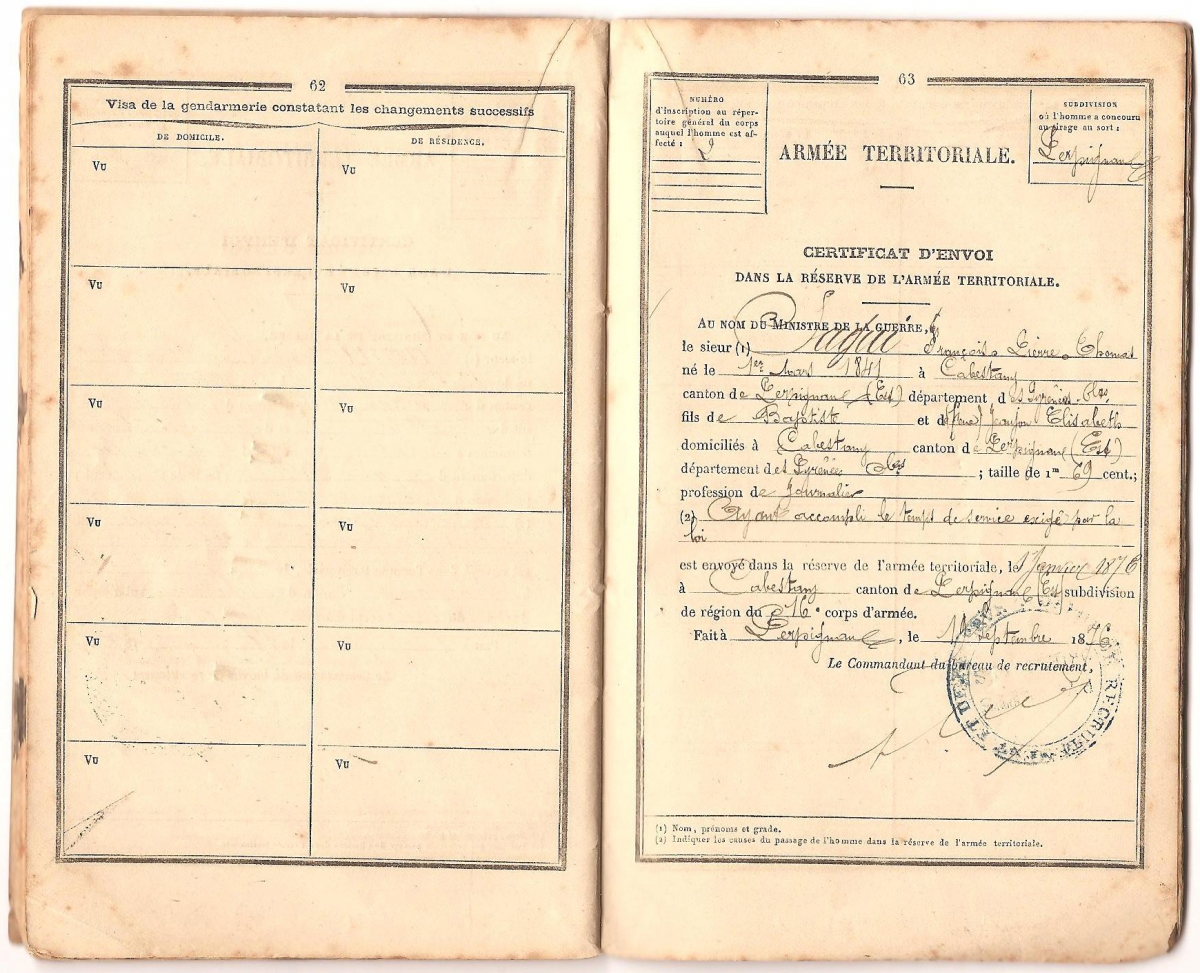 62
Visa de la gendarmerie constatant les changements successifs
DE DOMICILE.
DE RÉSIDENCE.
Vu
Vu
Vu
Vu
Vu
Vu
Vu
Vu
Vu
Vu
Vu
Vu
63
NUMÉRO
d'inscription au réper-
toire général du corps
auquel l'homme est af-
fecté : 2
ARMÉE TERRITORIALE.
SUBDIVISION
où l'homme a concouru
au tirage au sort :
Perpignan
CERTIFICAT D'ENVOI
DANS LA RÉSERVE DE L'ARMÉE TERRITORIALE.
AU NOM DU MINISTRE DE LA GUERRE,
le sieur (1) François Pierre Thomas
né le 1er mars 1841 à Cabestany
canton de Perpignan (Est) département des Pyrénées-Oles
fils de Baptiste et de (feue) Elisabeth
domiciliés à Cabestany canton de Perpignan (Est)
département des Pyrénées Oles ; taille de 1m 69 cent.;
profession de Journalier
(2) Ayant accompli le temps de service exigé par la
loi
est envoyé dans la réserve de l'armée territoriale, le 1 Janvier 1876
à Cabestany canton de Perpignan (Est) subdivision
de région du 16e corps d'armée.
Fait à Perpignan, le Septembre 1876
Le Commandant du bureau de recrutement,
RECRUTEMENT ET DE
(1) Nom, prénoms et grade.
(2) Indiquer les causes du passage de l'homme dans la réserve de l'armée territoriale.